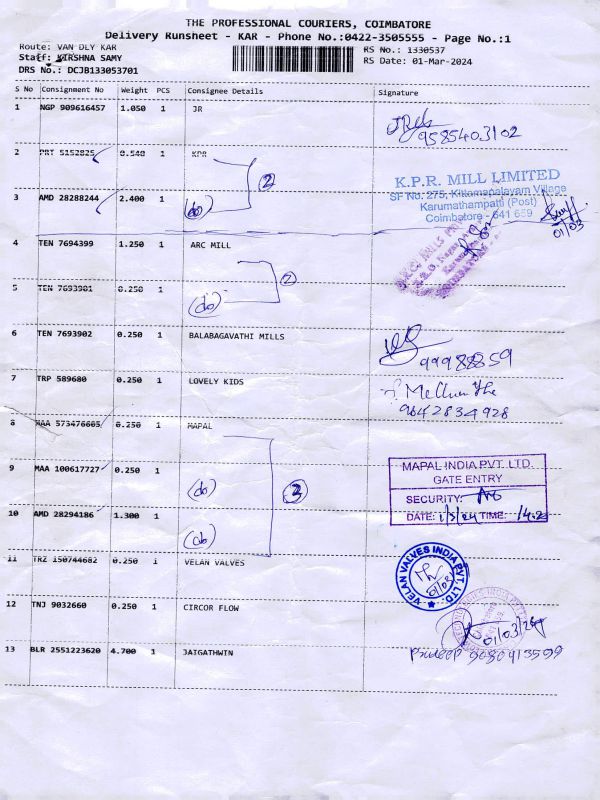 THE PROFESSIONAL COURIERS, COIMBATORE
Delivery Runsheet - KAR - Phone No.:0422-3505555 - Page No.:1
Route: VAN DLY KAR
RS No.: 1330537
Staff: KIRSHNA SAMY
RS Date: 01-Mar-2024
DRS No.: DCJB133053701
S No Consignment No Weight PCS Consignee Details Signature
1 NGP 909616457 1.050 1 JR
9585403102
2 PRT 5152825 0.540 1 KPR
2
K.P.R. MILL LIMITED
SF No. 275, Kittampalayam Village
Karumathampatti (Post)
Coimbatore - 641 659
3 AMD 28288244 2.400 1 (do)
01/03
4 TEN 7694399 1.250 1 ARC MILL
2
5 TEN 7693901 0.250 1 (do)
6 TEN 7693902 0.250 1 BALABAGAVATHI MILLS
99988859
7 TRP 589680 0.250 1 LOVELY KIDS
9842834928
8 MAA 573476605 0.250 1 MAPAL
MAPAL INDIA PVT. LTD.
GATE ENTRY
SECURITY:
DATE: 1/3/24 TIME: 14.2
9 MAA 100617727 0.250 1 (do)
10 AMD 28294186 1.300 1 (do)
11 TRZ 150744682 0.250 1 VELAN VALVES
VELAN VALVES INDIA PVT. LTD.
01/03
12 TNJ 9032660 0.250 1 CIRCOR FLOW
01/03/24
13 BLR 2551223620 4.700 1 JAIGATHWIN
Pradeep 9080413599